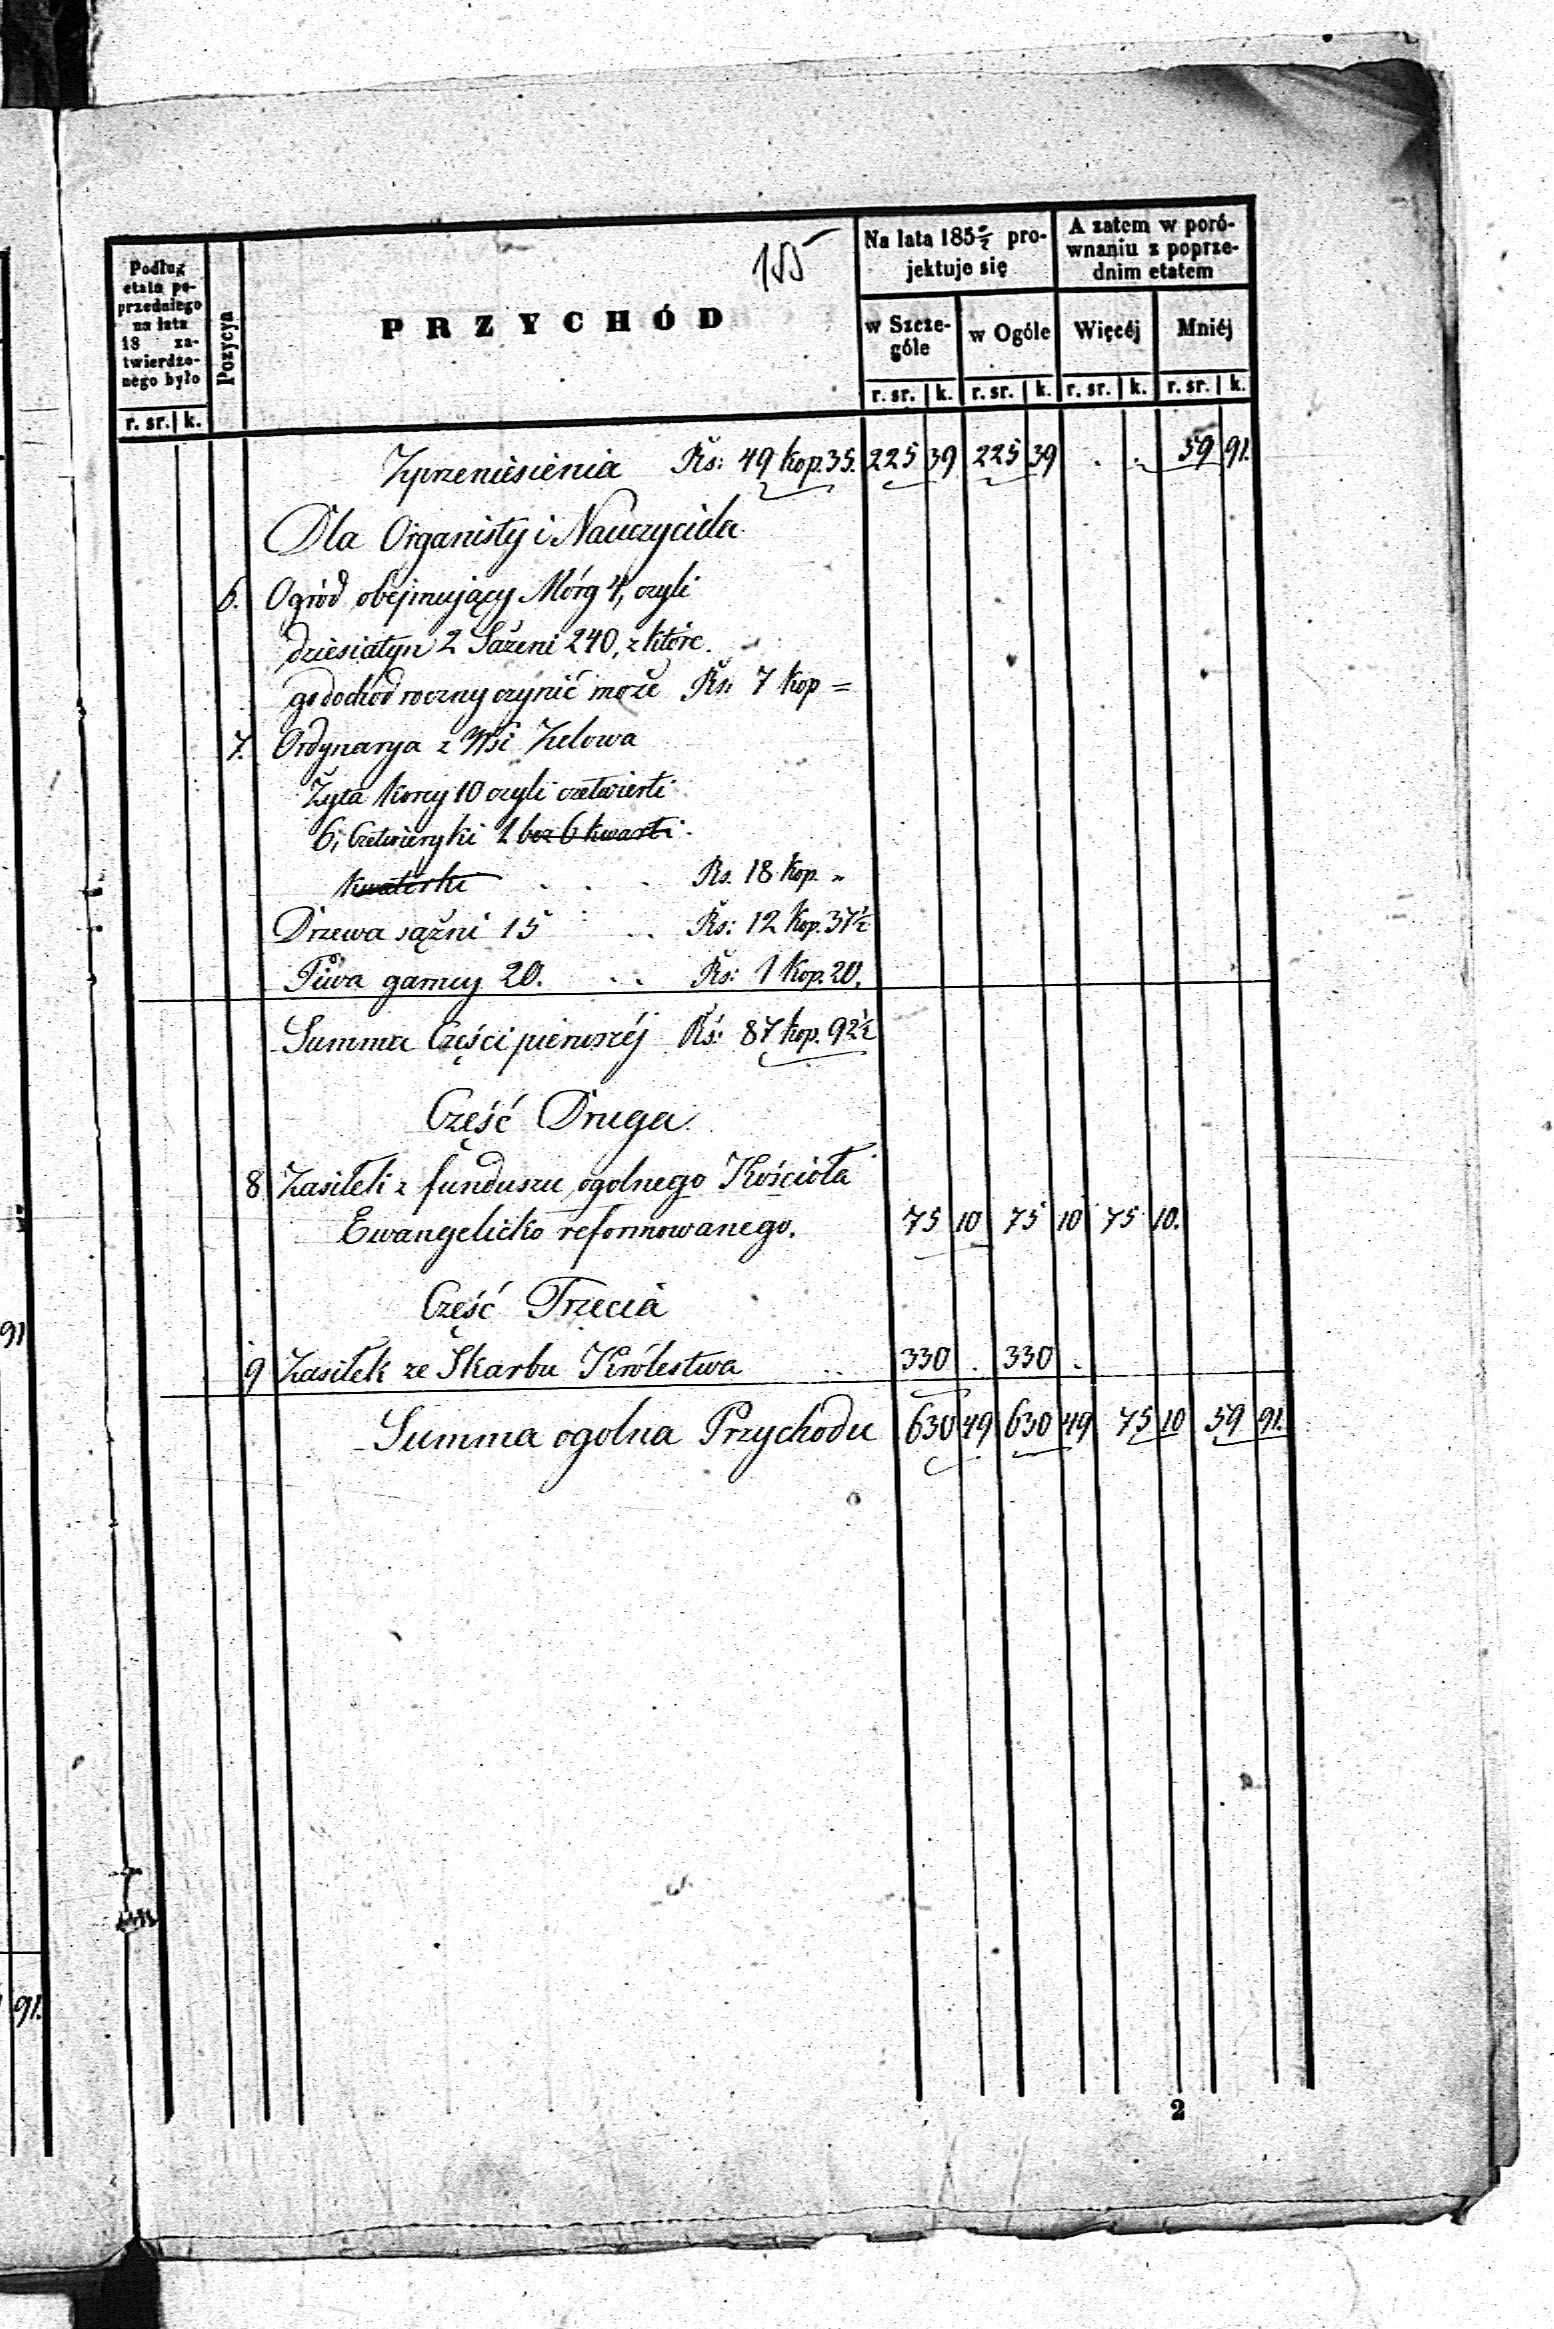 155
Podług
etatu po-
przedniego
na lata
18 za-
twierdzo-
nego było
Pozycya
PRZYCHÓD
Na lata 185 0/2 pro-
jektuje się
A zatem w poró-
wnaniu z poprze-
dnim etatem
w Szcze-
góle
w Ogóle
Więcéj
Mniéj
r. sr. k.
r. sr. k. r. sr. k. r. sr. k. r. sr. k.
Z przeniesienia Rs: 49 Kop. 35. 225 39 225 39 . . 59 91.
Dla Organisty i Nauczyciela
6. Ogród obejmujący Mórg 4, czyli
dziesiatyn 2 Sażeni 240, z które-
go dochód roczny czynić może Rs: 7 Kop =
7. Ordynarya z Wsi Zelowa
Żyta Korcy 10 czyli czetwierti
6, Czetwieryki 1 bez 6 kwarti
kwaterki . . . Rs. 18 Kop. „
Drzewa sążni 15 . . Rs: 12 Kop. 37½
Piwa garncy 20. . . Rs: 1 Kop. 20.
Summa Części pierwszéj Rs: 87 Kop. 92½
Część Druga
8 Zasiłek z funduszu ogolnego Kościoła
Ewangelicko reformowanego. 75 10 75 10 75 10.
Część Trzecia
9 Zasiłek ze Skarbu Królestwa .. 330 . 330 .
Summa ogolna Przychodu 630 49 630 49 75 10 59 91.
2
91
91.